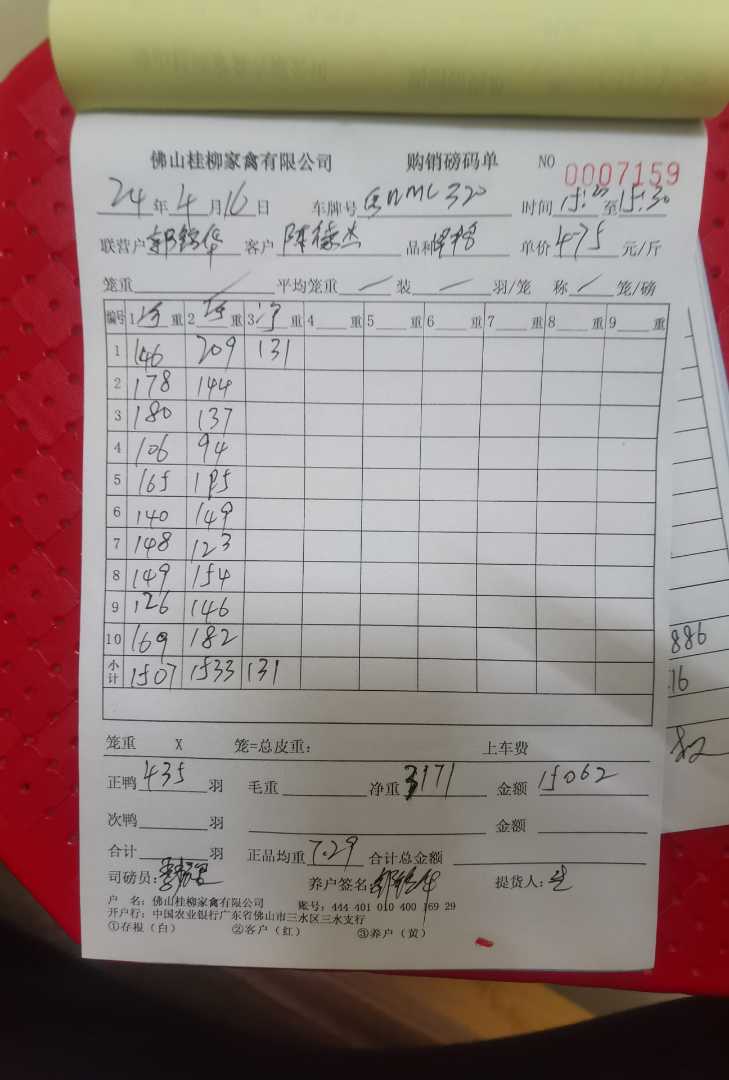 佛山桂柳家禽有限公司 购销磅码单 NO 0007159
24年4月16日 车牌号 320 时间 至15:30
联营户 客户 品种 单价4.75元/斤
笼重 平均笼重 装 羽/笼 称 笼/磅
编号 1 重 2 重 3 净重 4 重 5 重 6 重 7 重 8 重 9 重
1 146 209 131
2 178 144
3 180 137
4 106 94
5 165 195
6 140 149
7 148 123
8 149 154
9 126 146
10 169 182
小计 1507 1533 131
886
16
笼重 X 笼=总皮重: 上车费
正鸭435羽 毛重 净重3171 金额15062
次鸭 羽 金额
合计 羽 正品均重7.29 合计总金额
司磅员: 养户签名: 提货人:
户 名: 佛山桂柳家禽有限公司 账号: 444 401 010 400 169 29
开户行: 中国农业银行广东省佛山市三水区三水支行
①存根(白) ②客户(红) ③养户(黄)